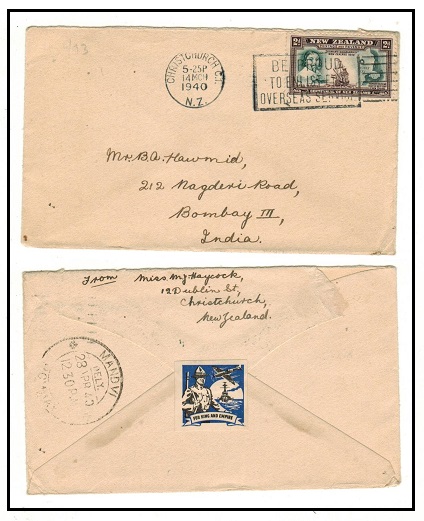 183
CHRISTCHURCH
5-25P
14MCH
1940
N.Z.
BE PROUD
TO ENLIST FOR
OVERSEAS SERVICE
2D NEW ZEALAND 2D
Mr. B.A. Hawmid,
212 Nagdevi Road,
Bombay III,
India.
From Miss M.J. Haycock,
12 Dublin St,
Christchurch,
New Zealand.
MANDVI
DELY.
23 APR 40
12.30P
FOR KING AND EMPIRE